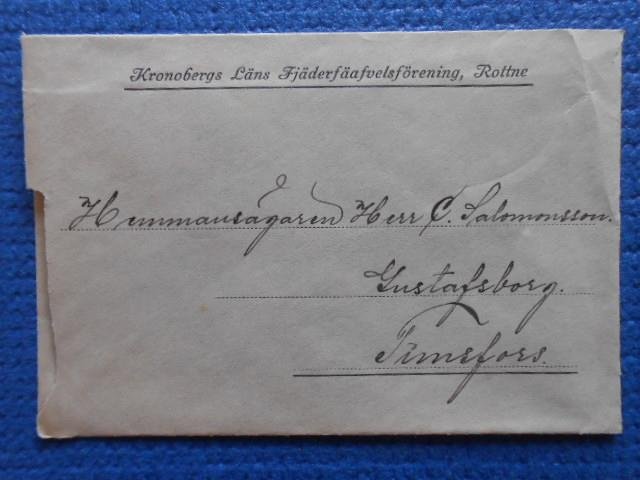 Kronobergs Läns Fjäderfäafvelsförening, Rottne
Hemmansägaren Herr C. Salomonsson.
Gustafsborg.
Timsfors.